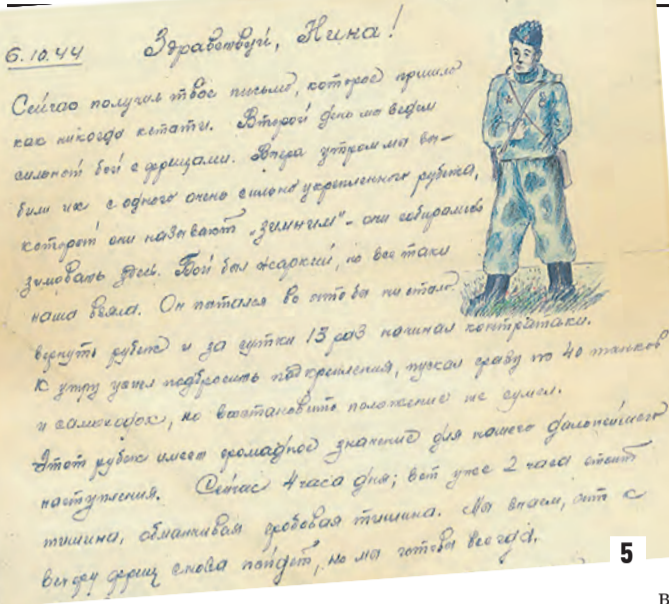 6.10.44 Здравствуй, Нина!
Сейчас получил твое письмо, которое пришло
как никогда кстати. Второй день мы ведем
сильный бой с фрицами. Вчера утром мы вы-
били их с одного очень сильно укрепленного рубежа,
который они называют „зимним" - они собирались
зимовать здесь. Бой был жаркий, но все таки
наша взяла. Он пытался во что бы ни стало
вернуть рубеж и за сутки 13 раз начинал контратаки.
К утру успел подбросить подкрепления, пускал сразу по 40 танков
и самоходок, но восстановить положение не сумел.
Этот рубеж имеет громадное значение для нашего дальнейшего
наступления. Сейчас 4 часа дня; вот уже 2 часа стоит
тишина, обманчивая гробовая тишина. Мы знаем, что к
вечеру фриц снова пойдет, но мы готовы всегда.
5
в